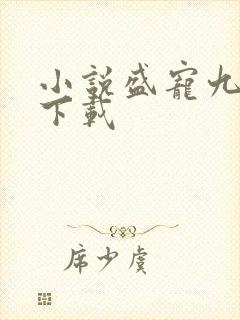 小説盛寵九
下載
席少虞